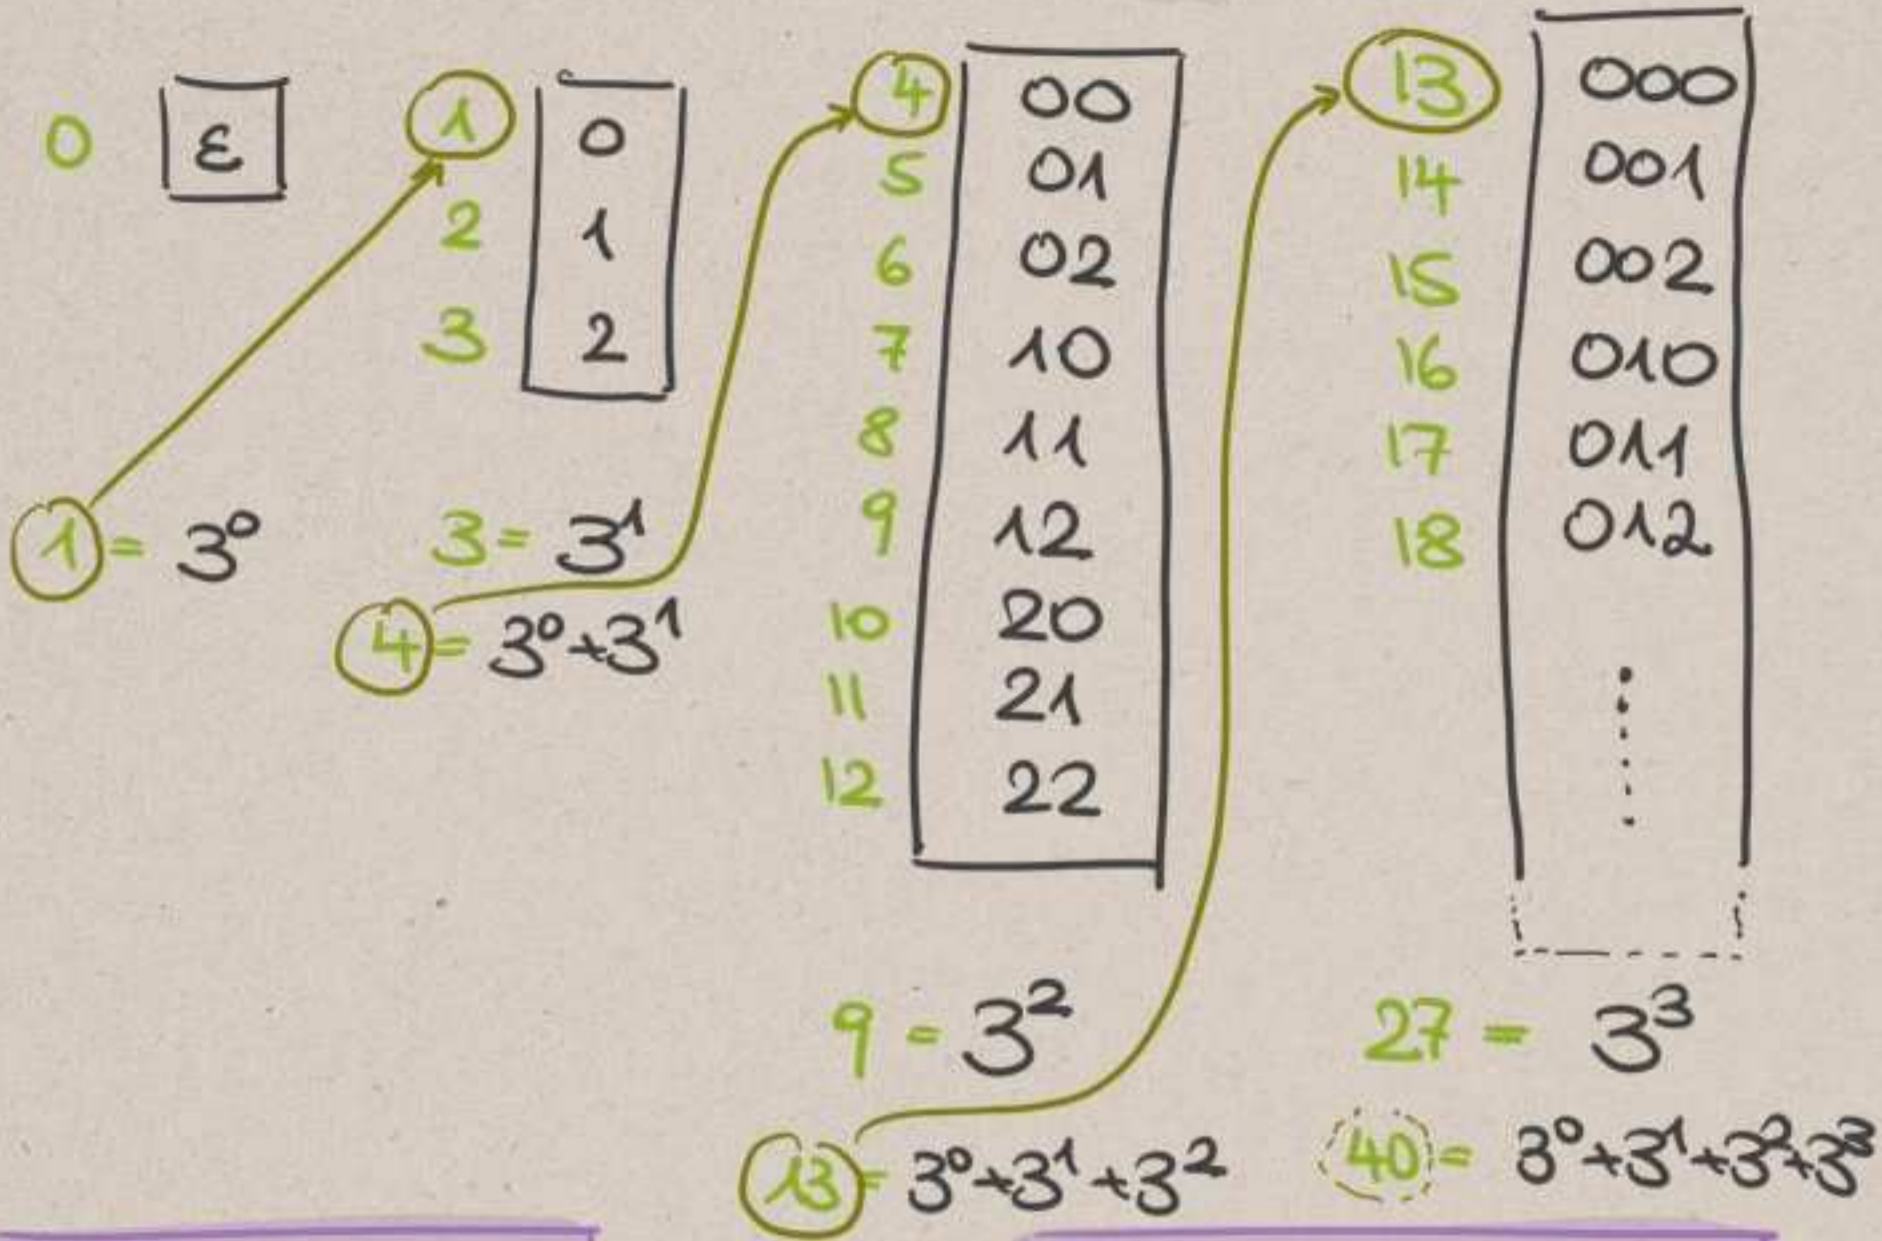 0 ε
1 0
2 1
3 2
1 = 3⁰
3 = 3¹
4 = 3⁰+3¹
4 00
5 01
6 02
7 10
8 11
9 12
10 20
11 21
12 22
9 = 3²
13 = 3⁰+3¹+3²
13 000
14 001
15 002
16 010
17 011
18 012
27 = 3³
40 = 3⁰+3¹+3²+3³